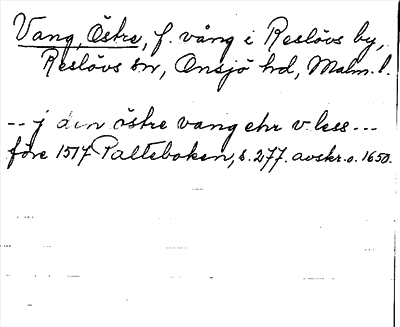 Vang, Östre, f. vång i Reslövs by,
Reslövs sn, Onsjö hd, Malm. l.
-- j den östre vang ehr v. less ---
före 1517 Palteboken, s. 277. avskr. o. 1650.